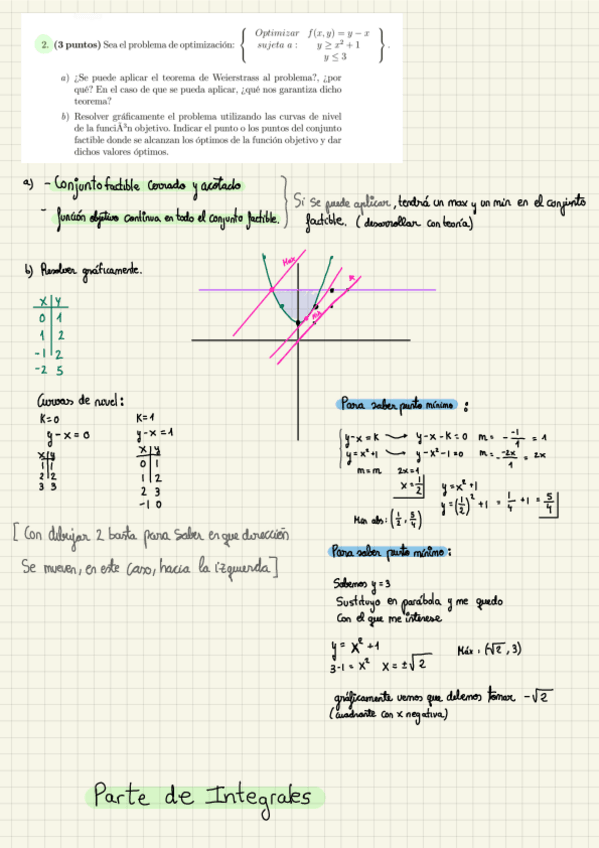 2. (3 puntos) Sea el problema de optimización: { Optimizar f(x, y) = y − x
sujeta a : y ≥ x² + 1
y ≤ 3 } .
a) ¿Se puede aplicar el teorema de Weierstrass al problema?, ¿por
qué? En el caso de que se pueda aplicar, ¿qué nos garantiza dicho
teorema?
b) Resolver gráficamente el problema utilizando las curvas de nivel
de la funciÃ³n objetivo. Indicar el punto o los puntos del conjunto
factible donde se alcanzan los óptimos de la función objetivo y dar
dichos valores óptimos.
a) - Conjunto factible cerrado y acotado
- función objetivo continua en todo el conjunto factible.
Sí se puede aplicar, tendrá un max y un min en el conjunto
factible. (desarrollar con teoría)
b) Resolver gráficamente.
x | y
0 | 1
1 | 2
-1 | 2
-2 | 5
Max
Min
Curvas de nivel:
K=0
y-x=0
x | y
1 | 1
2 | 2
3 | 3
K=1
y-x=1
x | y
0 | 1
1 | 2
2 | 3
-1 | 0
[Con dibujar 2 basta para saber en que dirección
Se mueven, en este caso, hacia la izquierda]
Para saber punto mínimo :
y-x=K → y-x-K=0 m= - -1/1 = 1
y=x²+1 → y-x²-1=0 m= - -2x/1 = 2x
m=m 2x=1
x=1/2
y=x²+1
y=(1/2)²+1 = 1/4 +1 = 5/4
Min abs: (1/2, 5/4)
Para saber punto mínimo :
Sabemos y=3
Sustituyo en parábola y me quedo
Con el que me interese
y= x²+1
3-1 = x² x = ±√2
Máx : (-√2, 3)
gráficamente vemos que debemos tomar -√2
(cuadrante con x negativa)
Parte de Integrales